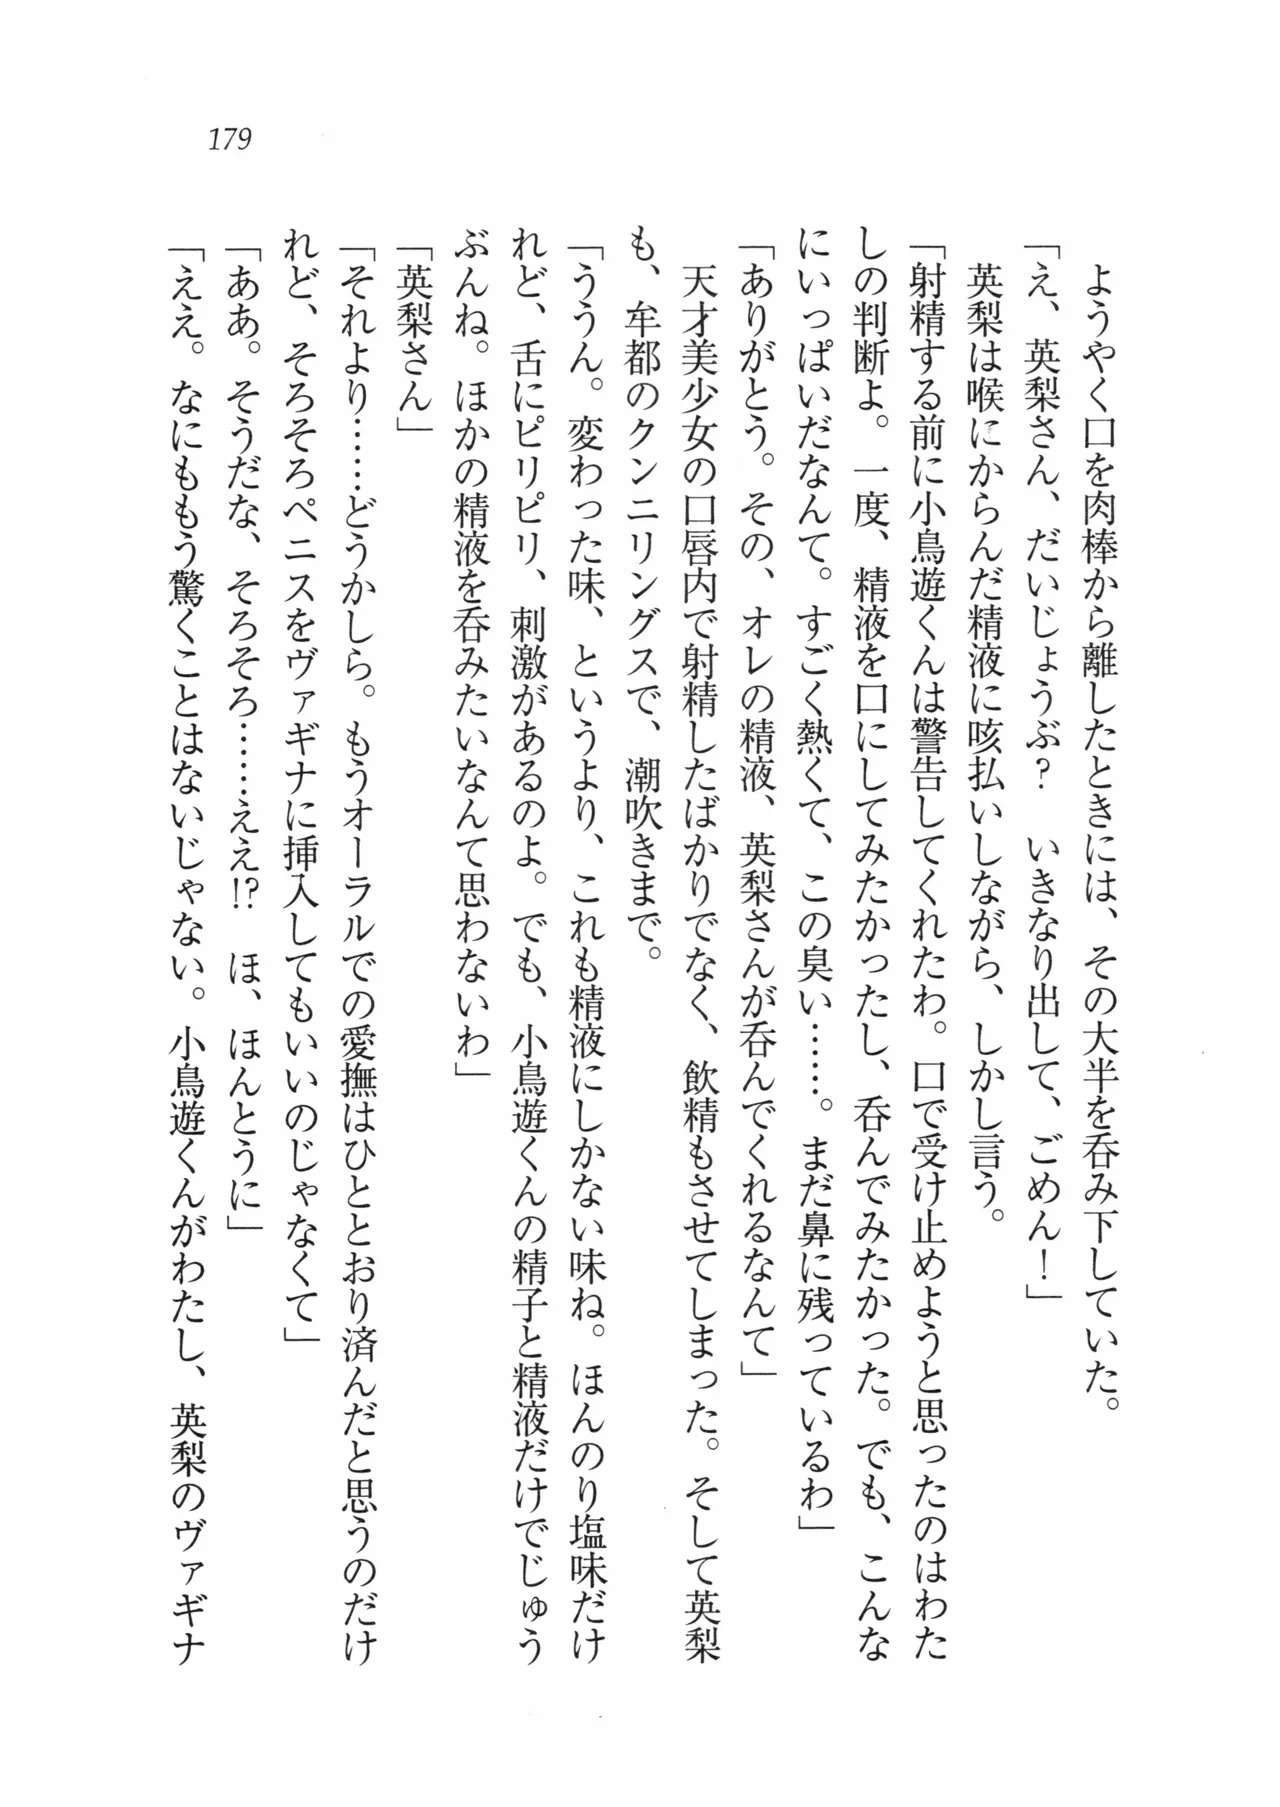 179
ようやく口を肉棒から離したときには、その大半を呑み下していた。
「え、英梨さん、だいじょうぶ？　いきなり出して、ごめん！」
英梨は喉にからんだ精液に咳払いしながら、しかし言う。
「射精する前に小鳥遊くんは警告してくれたわ。口で受け止めようと思ったのはわた
しの判断よ。一度、精液を口にしてみたかったし、呑んでみたかった。でも、こんな
にいっぱいだなんて。すごく熱くて、この臭い……。まだ鼻に残っているわ」
「ありがとう。その、オレの精液、英梨さんが呑んでくれるなんて」
天才美少女の口唇内で射精したばかりでなく、飲精もさせてしまった。そして英梨
も、牟都のクンニリングスで、潮吹きまで。
「ううん。変わった味、というより、これも精液にしかない味ね。ほんのり塩味だけ
れど、舌にピリピリ、刺激があるのよ。でも、小鳥遊くんの精子と精液だけでじゅう
ぶんね。ほかの精液を呑みたいなんて思わないわ」
「英梨さん」
「それより……どうかしら。もうオーラルでの愛撫はひととおり済んだと思うのだけ
れど、そろそろペニスをヴァギナに挿入してもいいのじゃなくて」
「ああ。そうだな、そろそろ……ええ!?　ほ、ほんとうに」
「ええ。なにももう驚くことはないじゃない。小鳥遊くんがわたし、英梨のヴァギナ